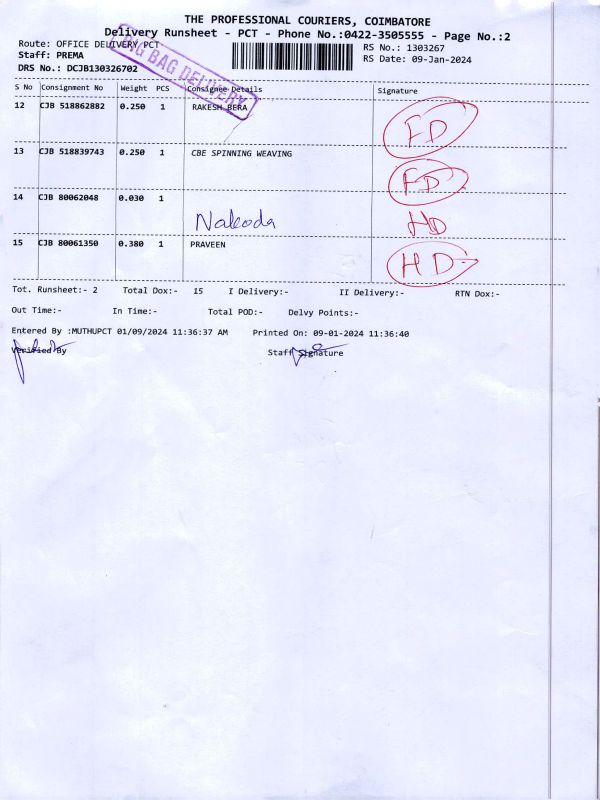 THE PROFESSIONAL COURIERS, COIMBATORE
Delivery Runsheet - PCT - Phone No.:0422-3505555 - Page No.:2
Route: OFFICE DELIVERY PCT
RS No.: 1303267
Staff: PREMA
RS Date: 09-Jan-2024
DRS No.: DCJB130326702
BIG BAG DELIVERY
S No Consignment No Weight PCS Consignee Details Signature
12 CJB 518862882 0.250 1 RAKESH BERA
FD
13 CJB 518839743 0.250 1 CBE SPINNING WEAVING
FD
14 CJB 80062048 0.030 1
Nakoda HD
15 CJB 80061350 0.380 1 PRAVEEN
HD
Tot. Runsheet:- 2 Total Dox:- 15 I Delivery:- II Delivery:- RTN Dox:-
Out Time:- In Time:- Total POD:- Delvy Points:-
Entered By :MUTHUPCT 01/09/2024 11:36:37 AM Printed On: 09-01-2024 11:36:40
Verified By Staff Signature